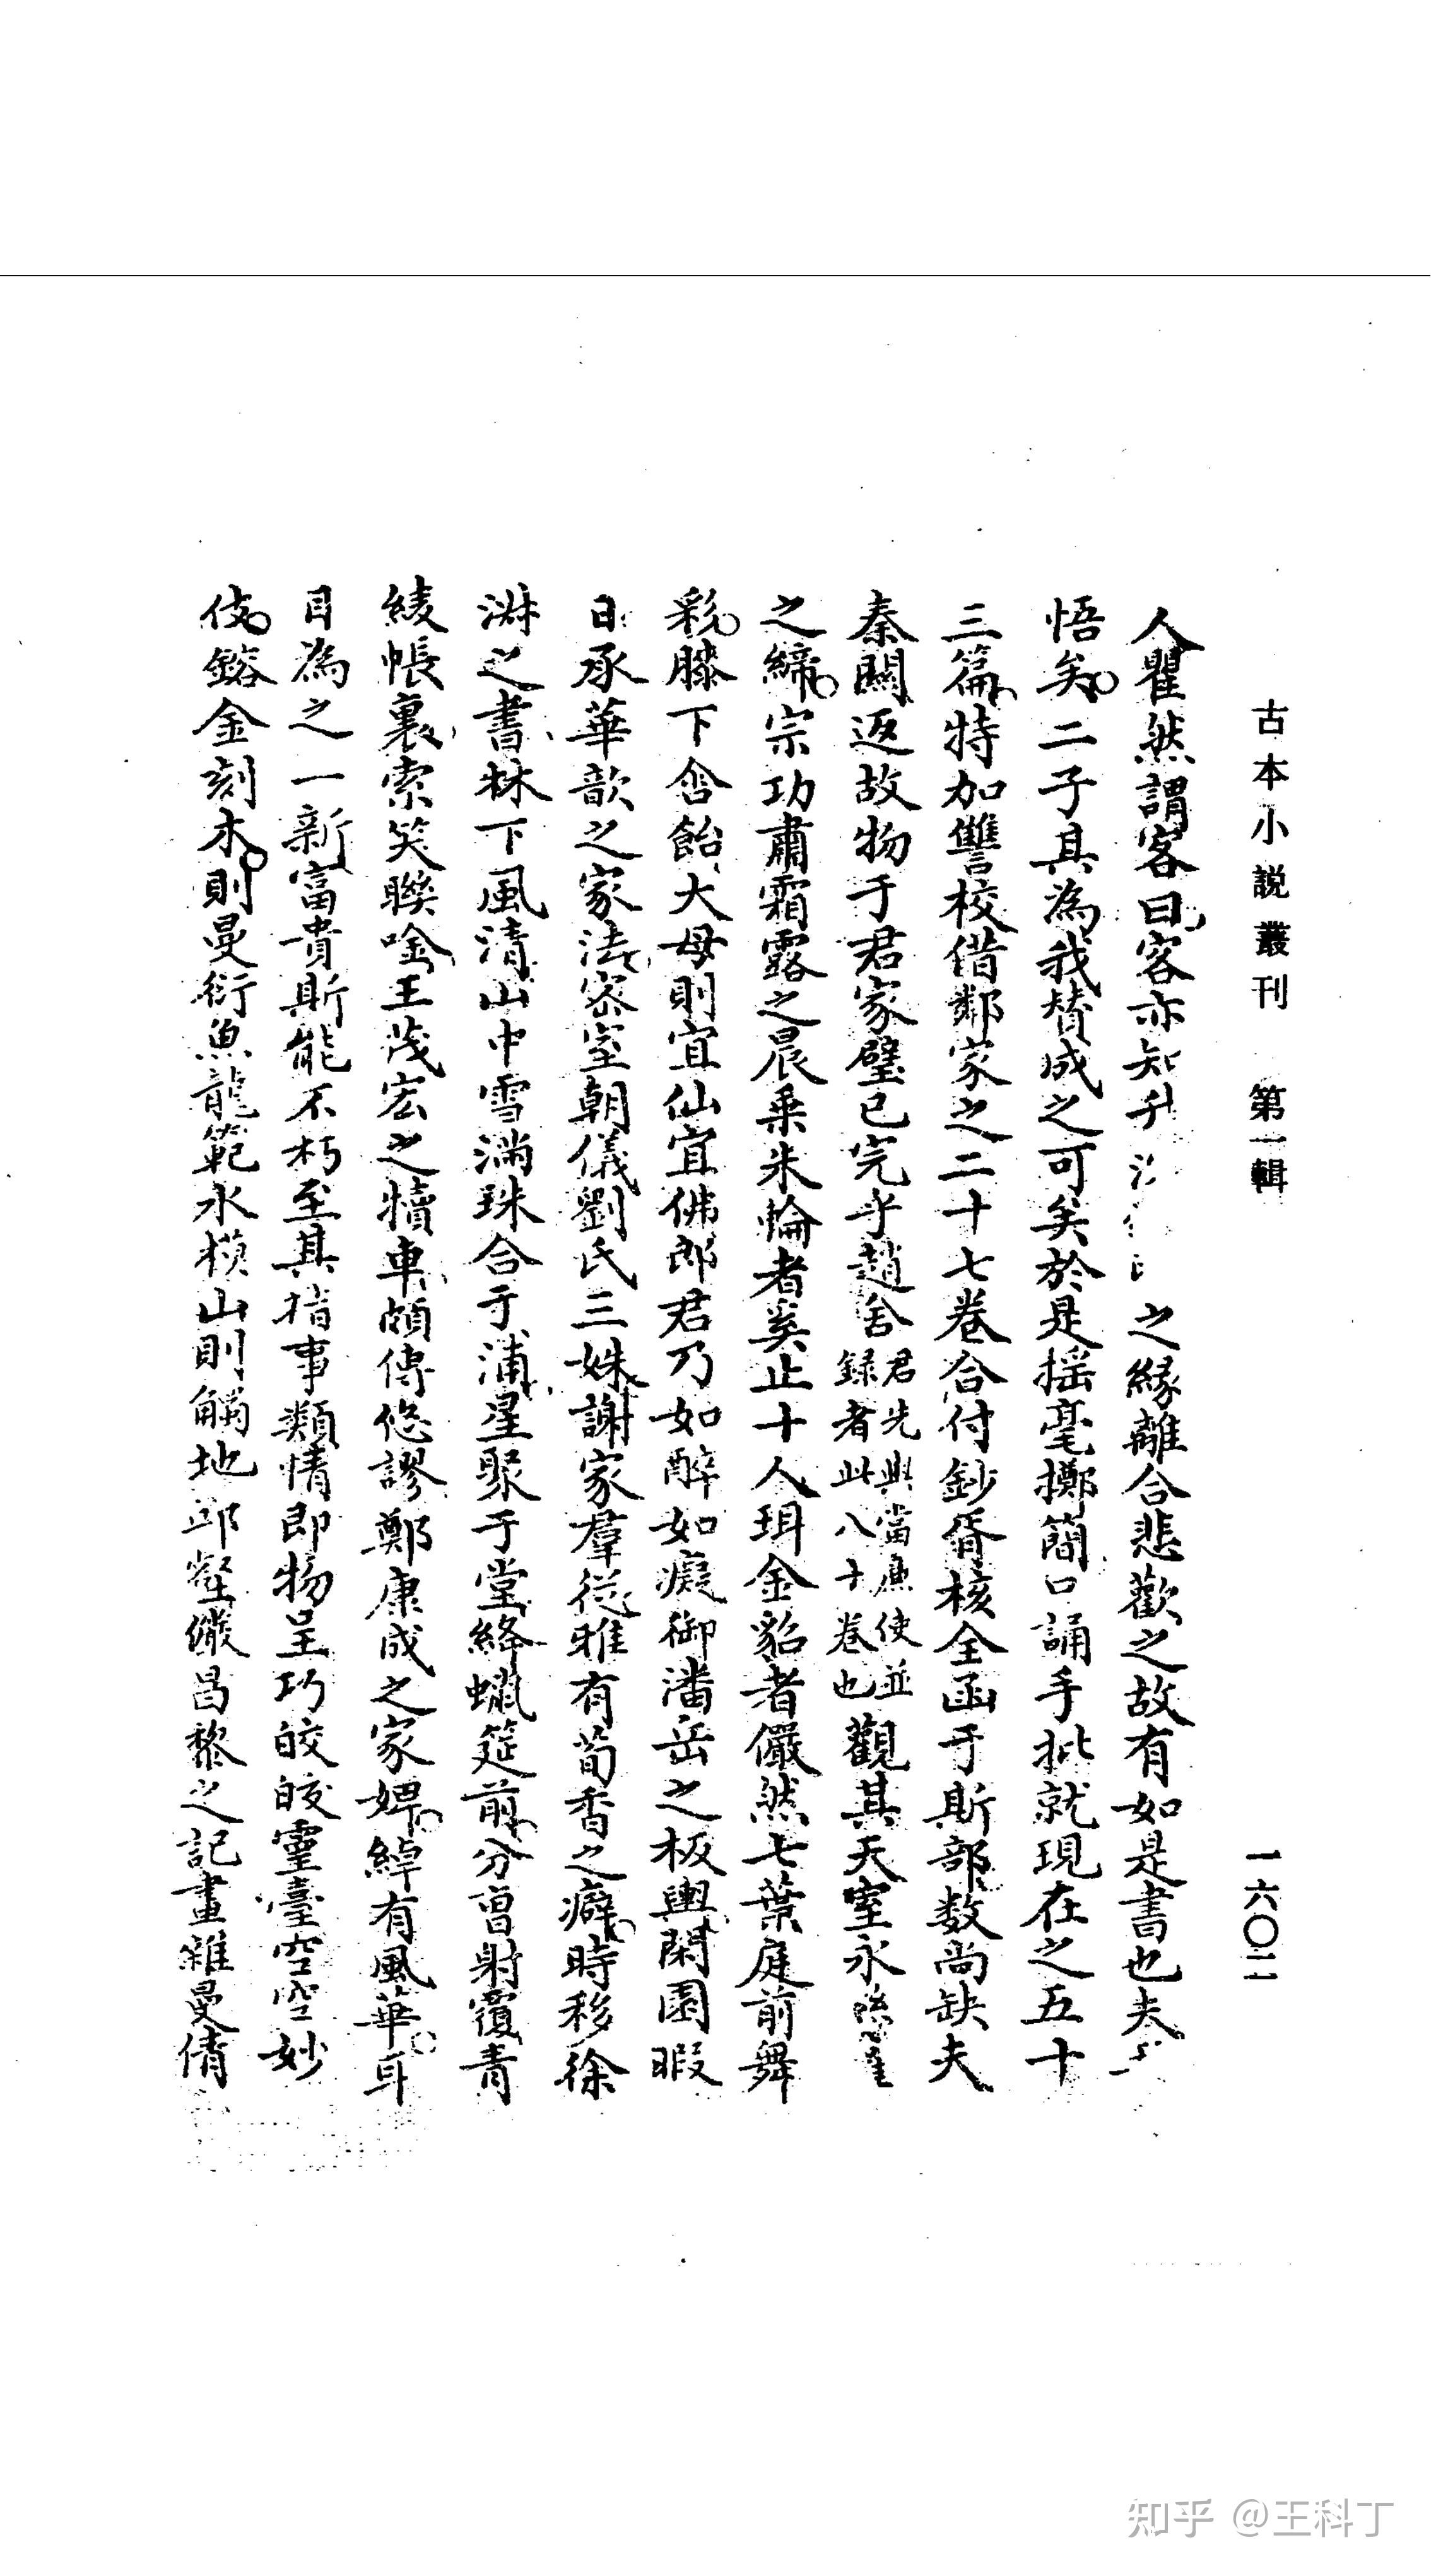 古本小說叢刊　第一輯
一六〇二
人瞿然謂客曰客亦知升　之緣離合悲歡之故有如是書也夫
悟矣二子其為我贊成之可矣於是搖毫擲簡口誦手批就現在之五十
三篇特加讐校借鄰家之二十七卷合付鈔胥核全函于斯部數尚缺夫
秦關返故物于君家璧已完乎趙舍君先與當廉使並錄者此八十卷也觀其天室永
之締宗功肅霜露之晨乘朱輪者奚止十人珥金貂者儼然七葉庭前舞
彩膝下含飴大母則宜仙宜佛郎君乃如醉如癡御潘岳之板輿閑園暇
日承華歆之家法密室朝儀劉氏三姝謝家羣從雅有荀香之癖時移徐
淋之書林下風清山中雪滿珠合于浦星聚于堂絳蠟筵前分曹射覆青
綾帳裏索笑聯唫王茂宏之犢車頗傳悠謬鄭康成之家婢綽有風華耳
目為之一新富貴斯能不朽至其指事類情即物呈巧皎皎靈臺空空妙
伎鎔金刻木則曼衍魚龍範水模山則觸地邱壑儼昌黎之記畫雜曼倩
知乎 @王科丁